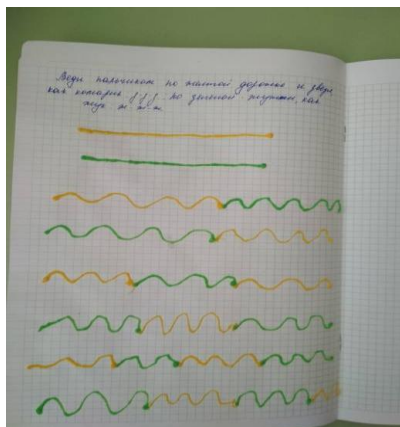 Веди пальчиком по желтой дорожке и звени
как комарик з-з-з; по зеленой жужжи, как
жук ж-ж-ж